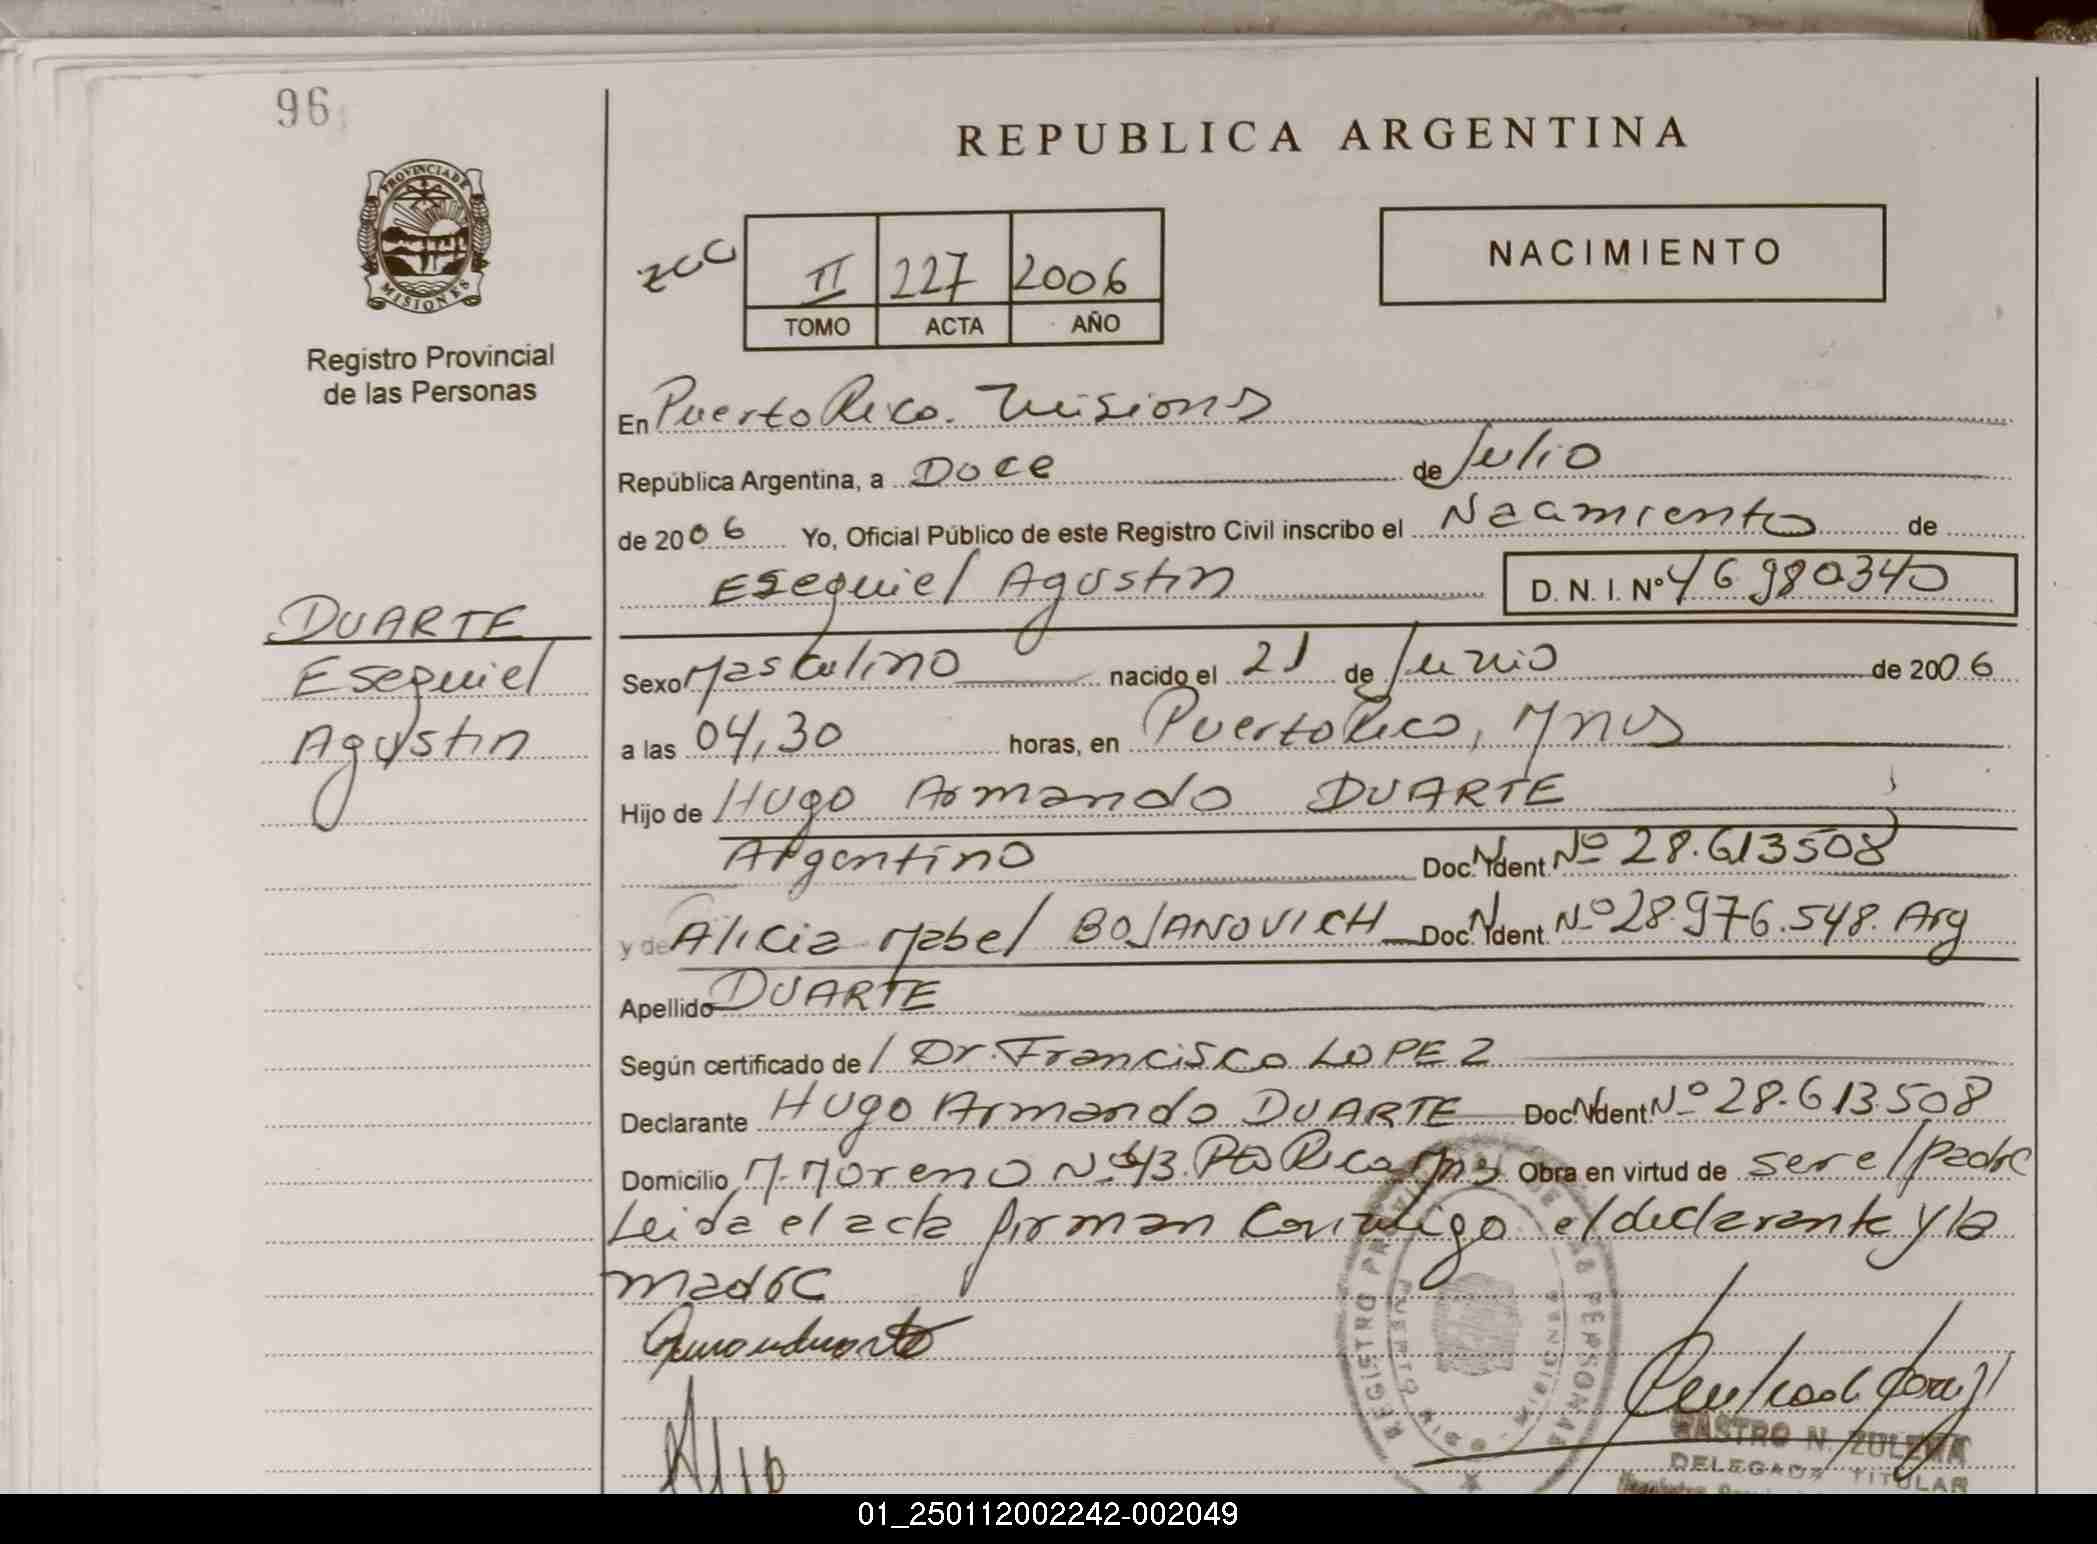 96
PROVINCIA DE
MISIONES
Registro Provincial
de las Personas
REPUBLICA ARGENTINA
NACIMIENTO
II 227 2006
TOMO ACTA AÑO
En Puerto Rico. Misiones
República Argentina, a Doce de Julio
de 2006 Yo, Oficial Público de este Registro Civil inscribo el Nacimiento de
Esequiel Agustin D. N. I. Nº 46980340
DUARTE
Esequiel
Agustin
Sexo Masculino nacido el 21 de Junio de 2006
a las 04,30 horas, en Puerto Rico, Mnes
Hijo de Hugo Armando DUARTE
Argentino Doc. Ident. Nº 28.613508
y de Alicia Mabel BOJANOVICH Doc. Ident. Nº 28.976.548. Arg
Apellido DUARTE
Según certificado de Dr. Francisco LOPEZ
Declarante Hugo Armando DUARTE Doc. Ident. Nº 28.613.508
Domicilio M. Moreno Nº 43. Pto Rico Mns Obra en virtud de ser el padre
Leida el acta firman conmigo el declarante y la
madre
REGISTRO PROVINCIAL DE LAS PERSONAS
PUERTO RICO - MISIONES
CASTRO N. ZULEMA
DELEGADA TITULAR
01_250112002242-002049